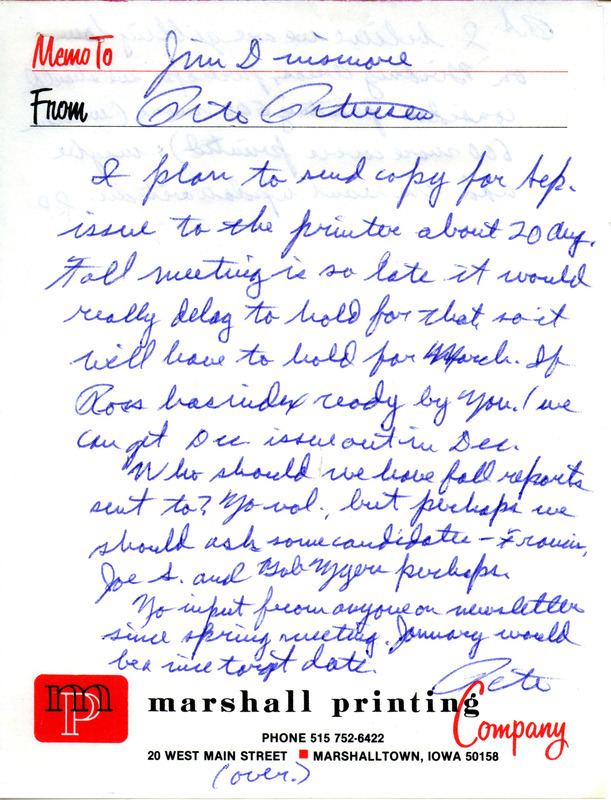 Memo To Jim Dinsmore
From Pete Petersen
I plan to send copy for Sep.
issue to the printer about 20 Aug.
Fall meeting is so late it would
really delay to hold for that, so it
will have to hold for March. If
Ross has index ready by Nov. 1 we
can get Dec issue out in Dec.
Who should we have fall reports
sent to? No vol., but perhaps we
should ask some candidates - Francis,
Joe S. and Bob Myers perhaps.
No input from anyone on newsletter
since spring meeting. January would
be a nice target date.
Pete
mp marshall printing Company
PHONE 515 752-6422
20 WEST MAIN STREET ■ MARSHALLTOWN, IOWA 50158
(over.)